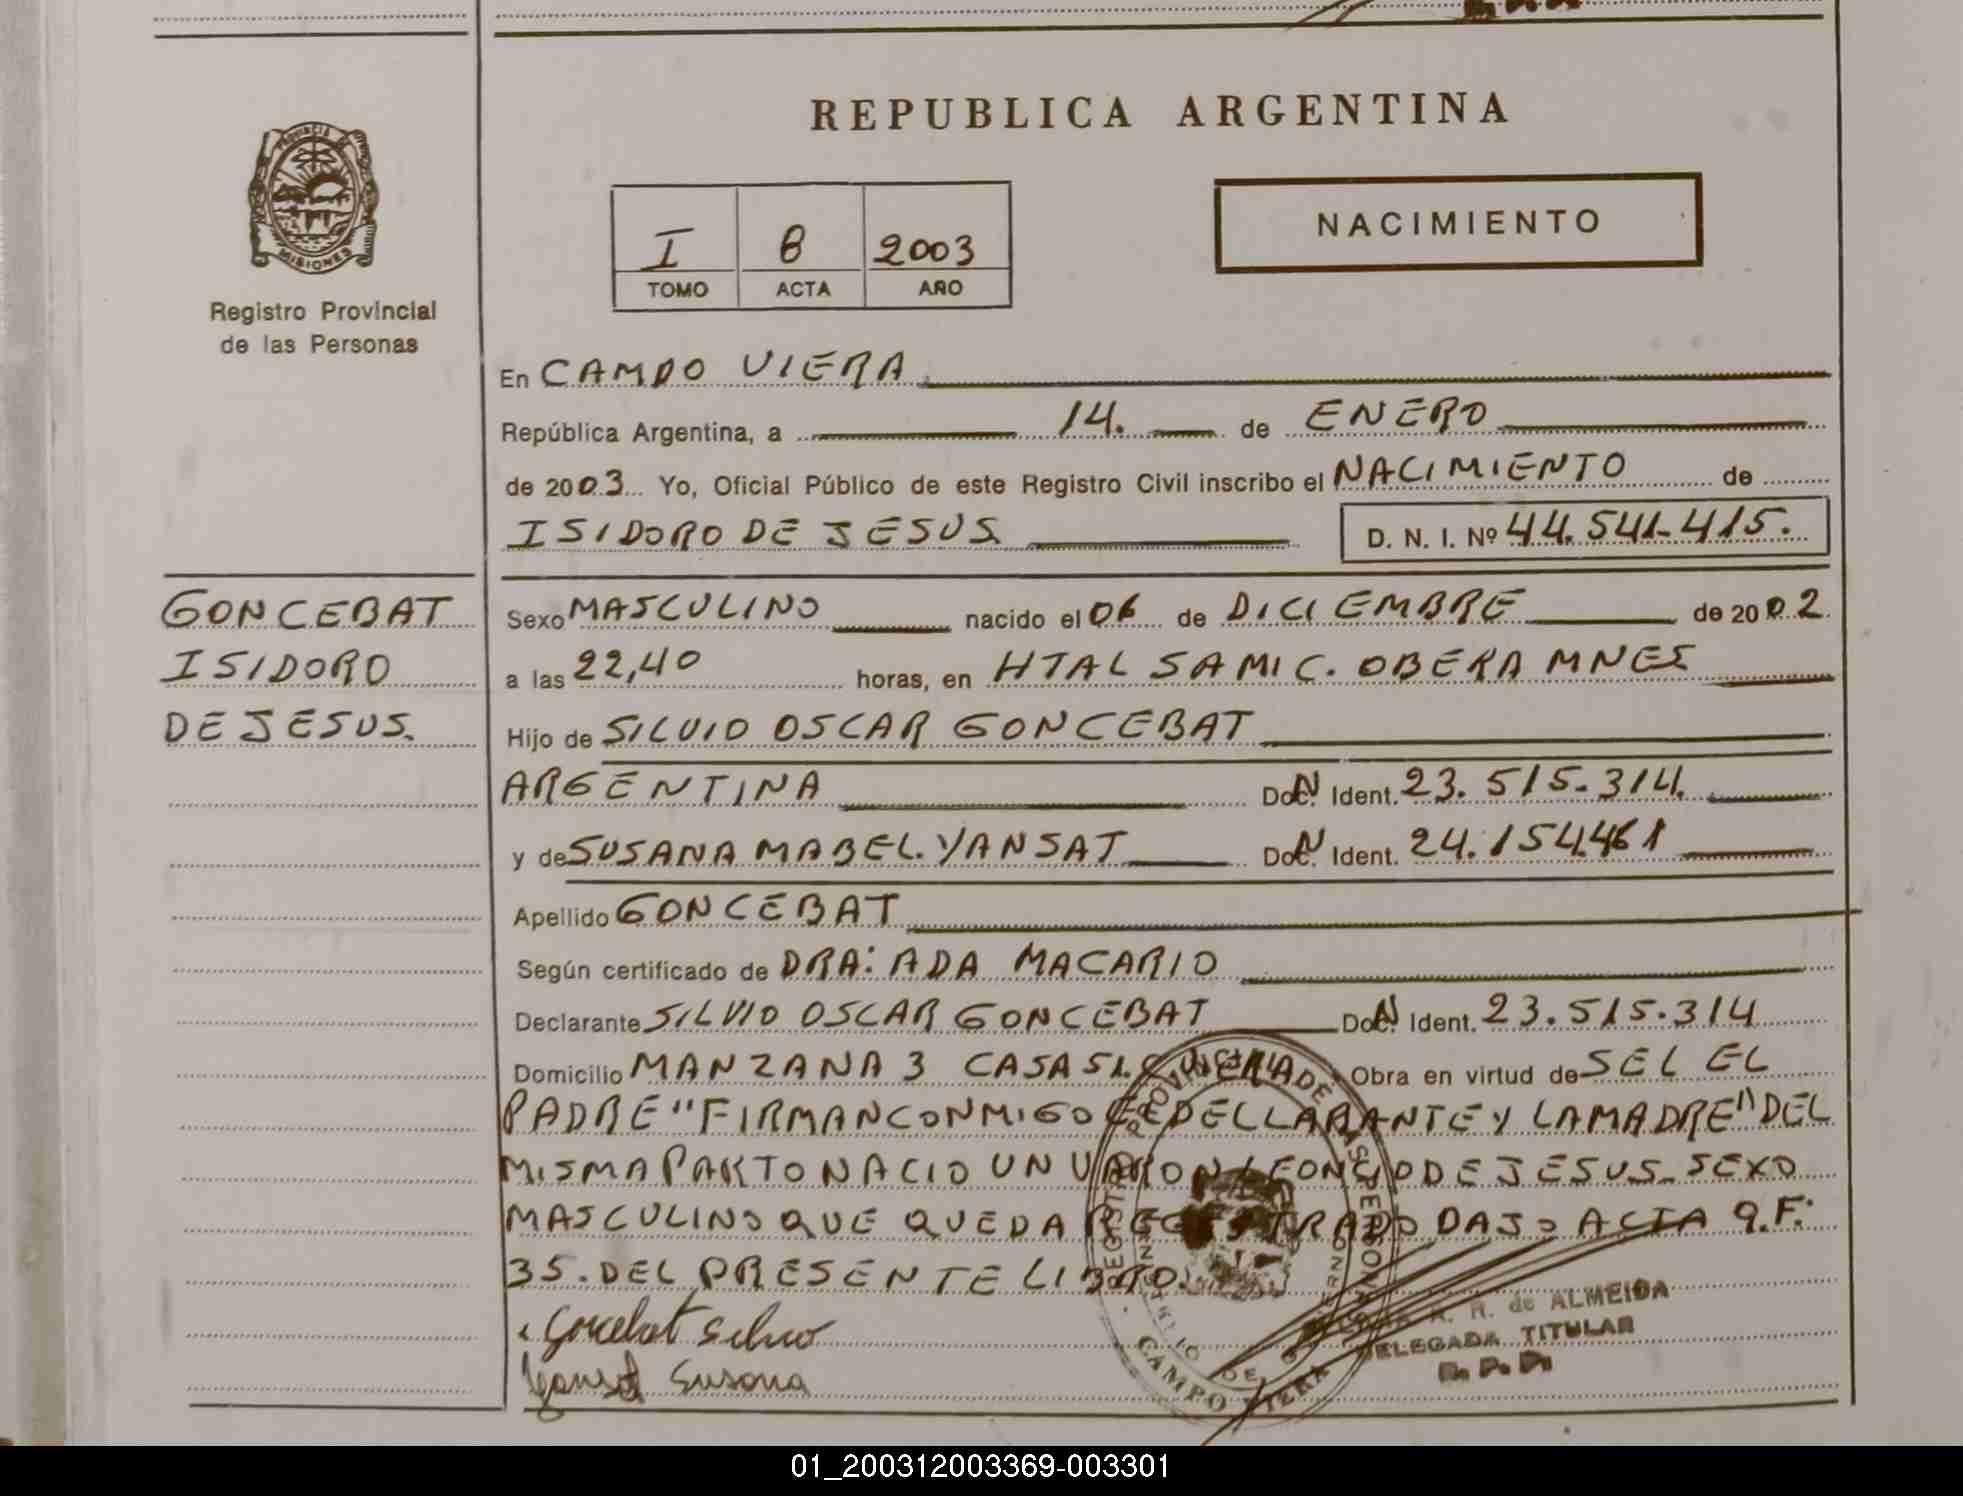 REPUBLICA ARGENTINA
PROVINCIA DE
MISIONES
Registro Provincial
de las Personas
I 8 2003
TOMO ACTA AÑO
NACIMIENTO
En CAMPO VIERA
República Argentina, a 14. de ENERO
de 2003 Yo, Oficial Público de este Registro Civil inscribo el NACIMIENTO de
ISIDORO DE JESUS. D. N. I. Nº 44.541.415.
GONCEBAT
ISIDORO
DE JESUS.
Sexo MASCULINO nacido el 06 de DICIEMBRE de 2002.
a las 22,40 horas, en HTAL SAMIC. OBERA MNES
Hijo de SILVIO OSCAR GONCEBAT
ARGENTINA Doc. N Ident. 23.515.314.
y de SUSANA MABEL. YANSAT Doc. N Ident. 24.154.461
Apellido GONCEBAT
Según certificado de DRA: ADA MACARIO
Declarante SILVIO OSCAR GONCEBAT Doc. N Ident. 23.515.314
Domicilio MANZANA 3 CASA 51. C. VIERA Obra en virtud de SEL EL
PADRE "FIRMAN CONMIGO EL DECLARANTE Y LA MADRE" DEL
MISMA PARTO NACIO UN VARON DE JESUS. SEXO
MASCULINO QUE QUEDA REGISTRADO BAJO ACTA 9. F:
35. DEL PRESENTE LIBRO.
Goncebat Silvio
Yansat Susana
REGISTRO PROVINCIAL DE LAS PERSONAS
CAMPO VIERA
R. de ALMEIDA
DELEGADA TITULAR
01_200312003369-003301